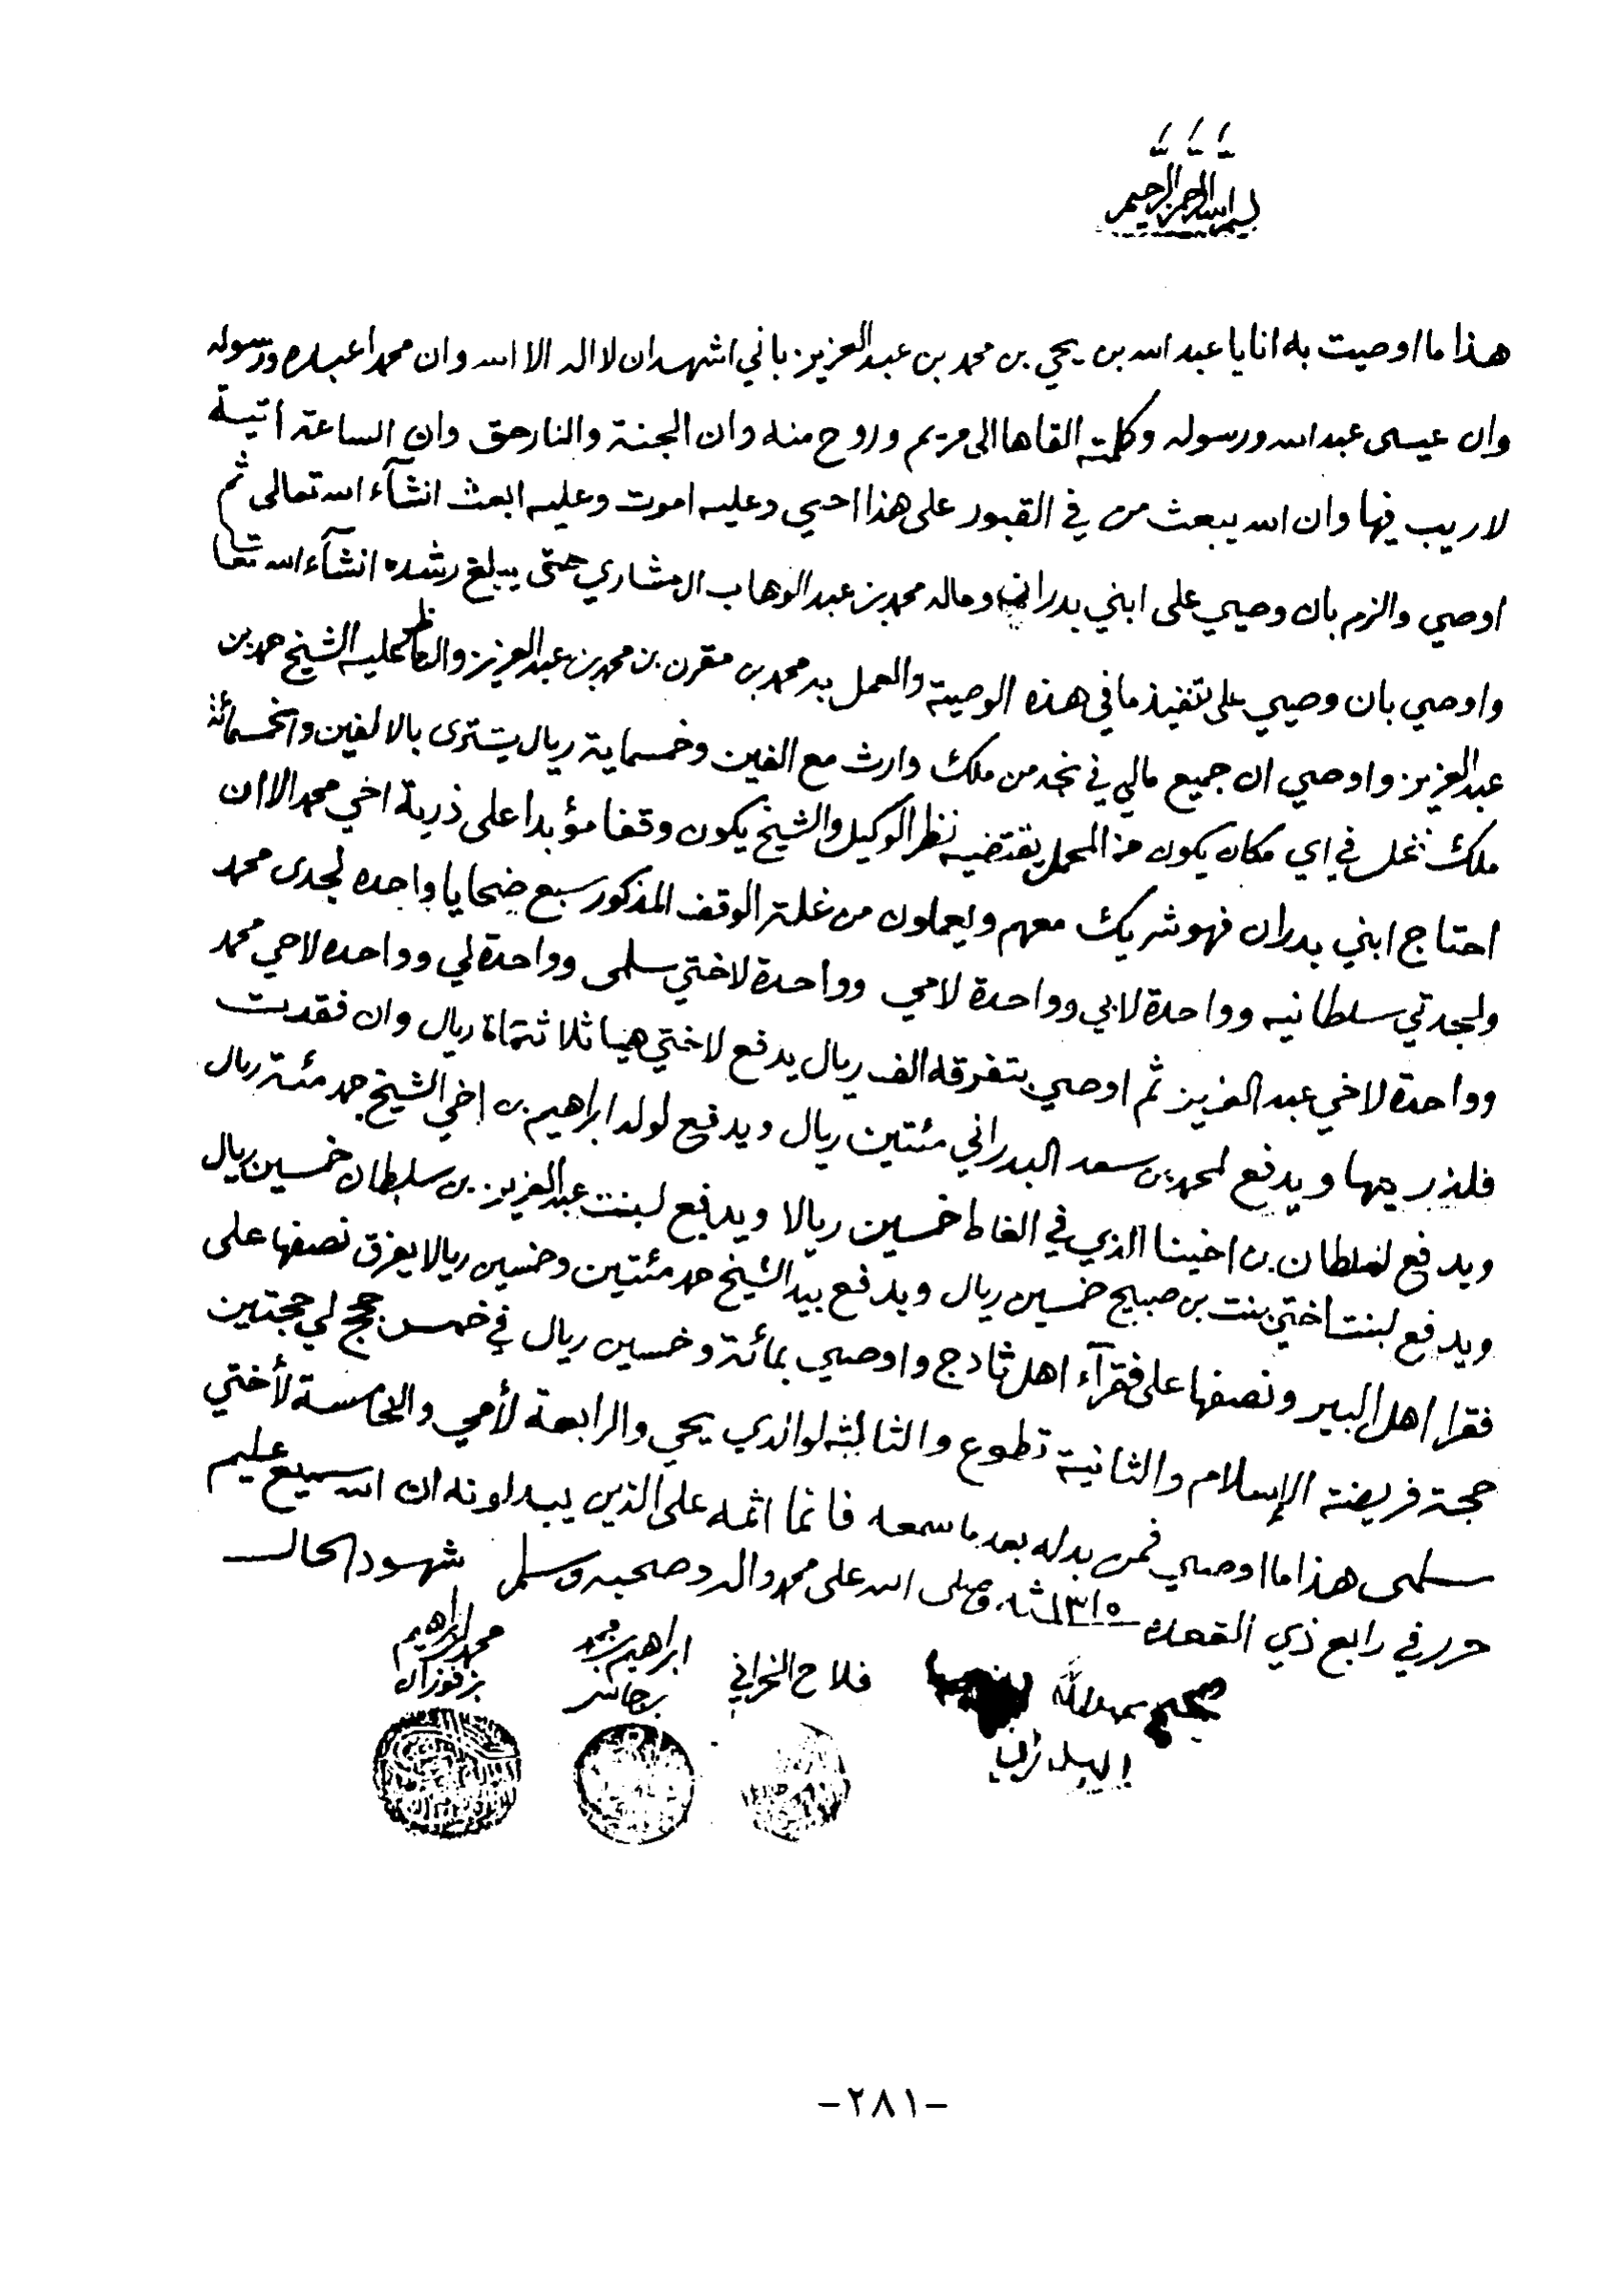 بسم الله الرحمن الرحيم
هذا ما اوصيت به انا يا عبد الله بن يحي بن محمد بن عبد العزيز باني اشهد ان لا اله الا الله وان محمدا عبده ورسوله
وان عيسى عبد الله ورسوله وكلمته القاها الى مريم وروح منه وان الجنة والنار حق وان الساعة اتية
لا ريب فيها وان الله يبعث من في القبور على هذا احيي وعليه اموت وعليه ابعث انشآء الله تعالى ثم
اوصي والزم بان وصيي على ابني بدران وماله محمد بن عبد الوهاب ال مشاري حتى يبلغ رشده انشآء الله تعا
واوصي بان وصيي على تنفيذ ما في هذه الوصية والعمل بد محمد بن مقرن بن محمد بن عبد العزيز والناظر عليه الشيخ حمد بن
عبد العزيز واوصي ان جميع مالي في نجد من ملك وارث مع الفين وخمسماية ريال يشترى بالالفين والخمسمائة
ملك نغل في اي مكان يكون من المحمل يقتضيه نظر الوكيل والشيخ يكون وقفا مؤبدا على ذرية اخي محمد الا ان
احتاج ابني بدران فهو شريك معهم ويعملون من غلة الوقف المذكور سبع ضحايا واحده لجدى محمد
ولجدتي سلطانيه وواحدة لابي وواحدة لامي وواحدة لاختي سلمى وواحدة لي وواحده لاخي محمد
وواحدة لاخي عبد العزيز ثم اوصي بتفرقه الف ريال يدفع لاختي هيا ثلاثماة ريال وان فقدت
فلذريتها ويدفع لمحمد بن سعد البدراني مئتين ريال ويدفع لولد ابراهيم بن اخي الشيخ حمد مئة ريال
ويدفع لسلطان بن اخينا الذي في الغاط خمسين ريالا ويدفع لبنت عبد العزيز بن سلطان خمسين ريال
ويدفع لبنت اختي بنت بن صبيح خمسين ريال ويدفع بيد الشيخ حمد مئتين وخمسين ريالا يفرق نصفها على
فقرا اهل البير ونصفها على فقرآء اهل ثادج واوصي بمائة وخمسين ريال في خمس حجج لي حجتين
حجة فريضة الإسلام والثانية تطوع والثالثه لوالدي يحي والرابعة لأمي والخامسة لأختي
سلمى هذا ما اوصي فمن بدله بعد ما سمعه فانما اثمه على الذين يبدلونه ان الله سميع عليم
حرر في رابع ذي القعده ١٣١٥ وصلى الله على محمد واله وصحبه وسلم شهود الحال
صحيح عبدالله بن يحيا
البدراني
فلاح النخراني
ابراهيم بن محمد
بن جاسر
محمد بن ابراهيم
بن فوزان
-٢٨١-